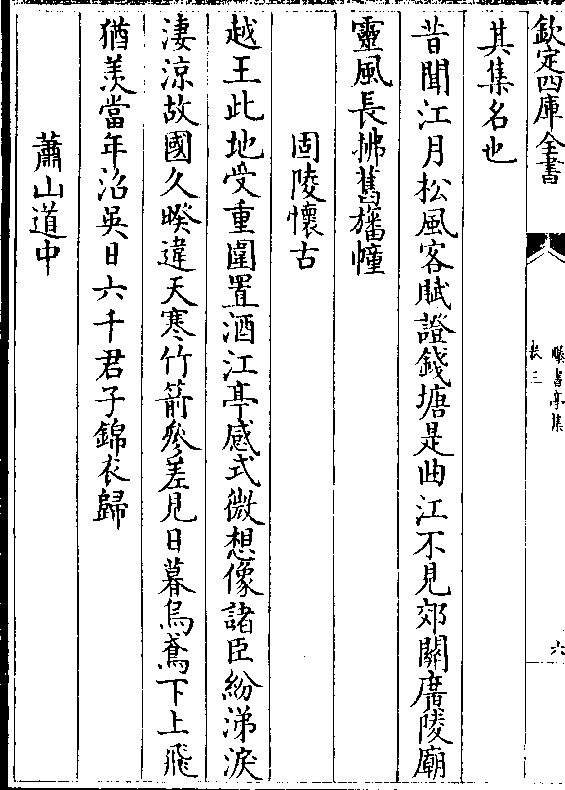 欽定四庫全書
曝書亭集
卷三
六
其集名也
昔聞江月松風客賦證錢塘是曲江不見郊關廣陵廟
靈風長拂舊旛幢
固陵懷古
越王此地受重圍置酒江亭感式微想像諸臣紛涕淚
淒涼故國久暌違天寒竹箭參差見日暮烏鳶下上飛
猶羨當年沼吳日六千君子錦衣歸
蕭山道中